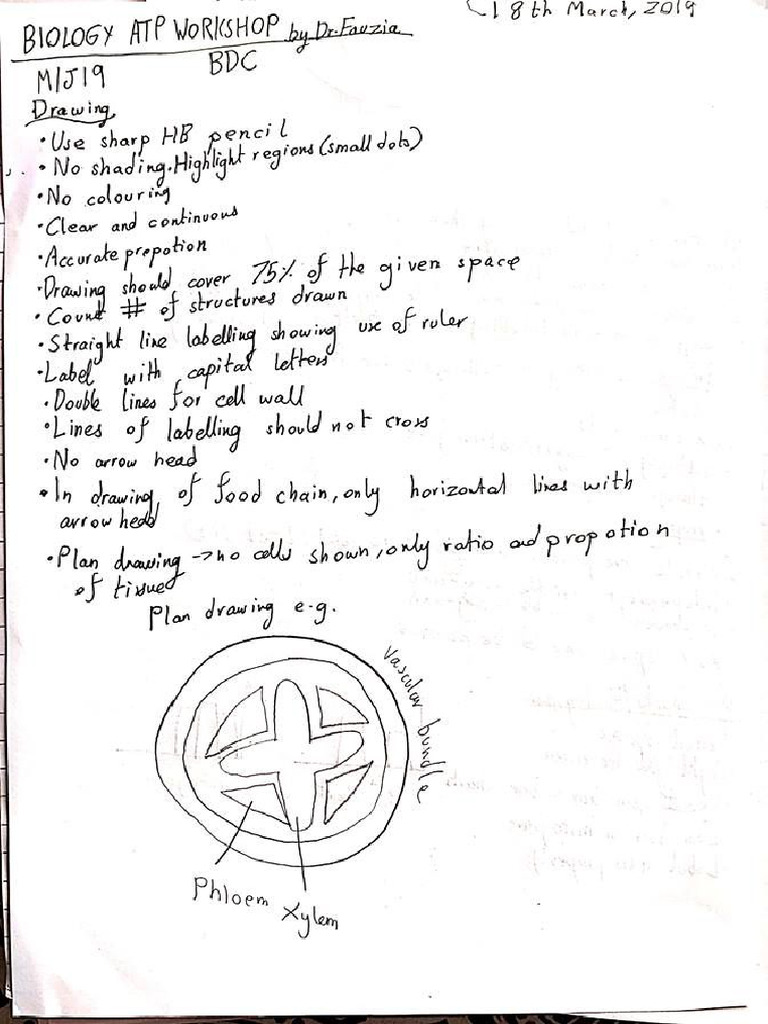 18th March, 2019
BIOLOGY ATP WORKSHOP by Dr. Fauzia
M/J19 BDC
Drawing
• Use sharp HB pencil
• No shading. Highlight regions (small dots)
• No colouring
• Clear and continuous
• Accurate prepotion
• Drawing should cover 75% of the given space
• Count # of structures drawn
• Straight line labelling showing use of ruler
• Label with capital letters
• Double lines for cell wall
• Lines of labelling should not cross
• No arrow head
• In drawing of food chain, only horizontal lines with
arrow head
• Plan drawing → no cells shown, only ratio and propotion
of tissue
Plan drawing e.g.
Vascular bundle
Phloem Xylem